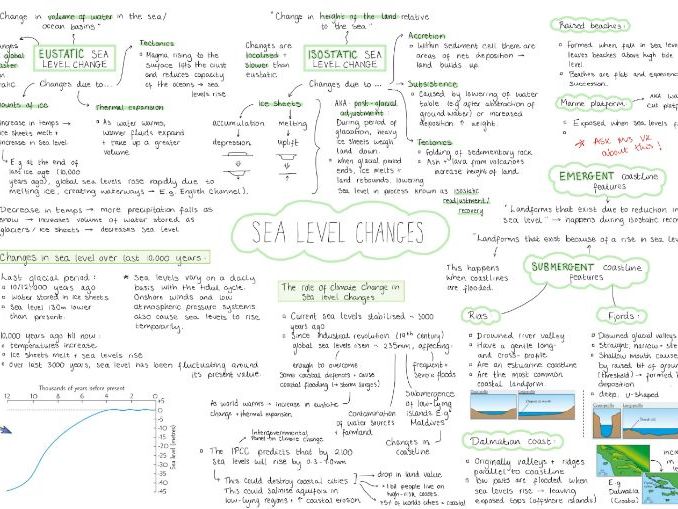 "Change in volume of water in the sea/
ocean basins"
global
faster
EUSTATIC SEA
LEVEL CHANGE
Changes due to...
Tectonics
Magma rising to the
surface lifts the crust
and reduces capacity
of the oceans → sea
levels rise
amounts of ice
increase in temps →
ice sheets melt +
increase in sea level
Thermal expansion
As water warms,
warmer fluids expand
+ take up a greater
volume.
E.g at the end of
last ice age (10,000
years ago), global sea levels rise rapidly due to
melting ice, creating waterways → E.g. English Channel).
Decrease in temps → more precipitation falls as
snow → increases volume of water stored as
glaciers/ice sheets → decreases sea level
"Change in height of the land relative
to the sea"
Changes are
localised +
slower than
eustatic
ISOSTATIC SEA
LEVEL CHANGE
Changes due to ...
Ice Sheets
accumulation
depression
melting
uplift
AKA post-glacial
adjustment
During period of
glaciation, heavy
ice sheets weigh
land down.
when glacial period
ends, ice melts +
land rebounds, lowering
Sea level in process known as isostatic
readjustment/
recovery
Accretion
Within sediment cell there are
areas of net deposition →
land builds up.
Subsistence
Caused by lowering of water
table (e.g after abstraction of
ground water) or increased
deposition + weight.
Tectonics
Folding of sedimentary rock
Ash + lava from volcanoes
increase height of land.
SEA LEVEL CHANGES
Raised beaches:
Formed when fall in sea level
leaves beaches above high tide
level.
Beaches are flat and
Marine platform
Exposed when sea levels
* ASK MVS VR
about this!
EMERGENT coastline
features
"Landforms that exist due to reduction in
sea level" → happens during isostatic
"Landforms that exist because of a rise in sea level"
This happens
when coastlines
are flooded.
SUBMERGENT coastline
features
Rias
Drowned river valley
Have a gentle long-
and cross-profile.
Are an estuarine coastline
Are the most common
coastal landform.
Fjords:
Drowned glacial valleys
Straight, narrow +
Shallow mouth caused
by raised bit of ground
(threshold) → formed
deposition
deep, u-shaped
Dalmatian coast:
Originally valleys + ridges
parallel to coastline
low parts are flooded when
sea levels rise → leaving
exposed tops (offshore islands)
E.g
Dalmatia
(Croatia)
Changes in sea level over last 10,000 years:
Last glacial period:
10/12,000 years ago
water stored in ice sheets
Sea level 130m lower
than present.
* Sea levels vary on a daily
basis with the tidal cycle.
Onshore winds and low
atmospheric pressure systems
also cause sea levels to rise
temporarily.
10,000 years ago till now:
temperatures increase
Ice sheets melt + sea levels rise
Over last 3000 years, sea level has been fluctuating around
its present value.
Thousands of years before present
12 10 8 6 4 2 0
+5
0
-5
-10
-15
-20
-25
-30
-35
-40
-45
Sea level (metres)
The role of climate change in
sea level changes
Current sea levels stabilised ~ 3000
years ago
Since Industrial revolution (19th century)
global sea levels risen ~ 235mm, affecting:
enough to overcome
some coastal defences + cause
coastal flooding (+ storm surges)
frequent +
severe floods
As world warms → increase in eustatic
change + thermal expansion.
Contamination
of water sources
+ farmland
Submergence
of low-lying
islands E.g
Maldives
Changes in
coastline
Intergovernmental
Panel on climate change
The IPCC predicts that by 2100
sea levels will rise by 0.3-1.0m
This could destroy coastal cities
This could salinise aquifers in
low-lying regions + ↑ coastal erosion
drop in land value
people live on
high-risk coasts
of worlds cities = coastal